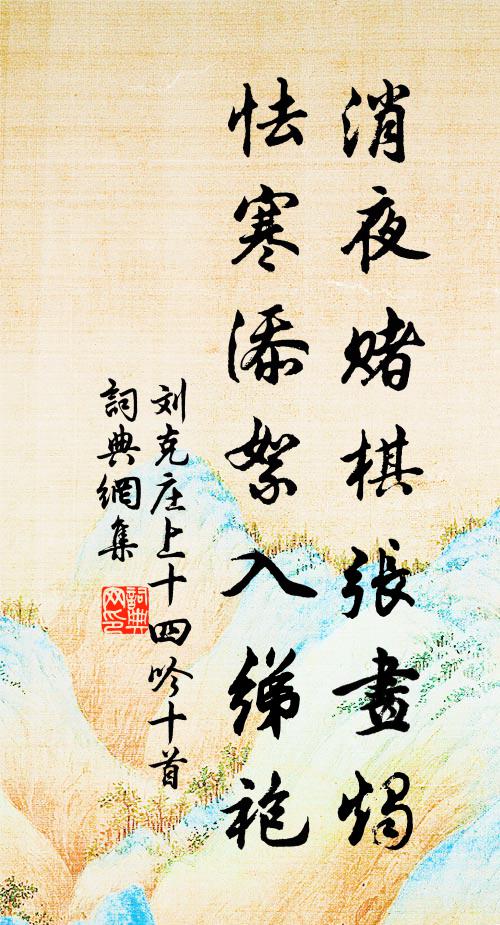 消夜賭棋張畫燭
怯寒添絮入綈袍
刘克庄上十四吟十首
詞典網集
詞典網印